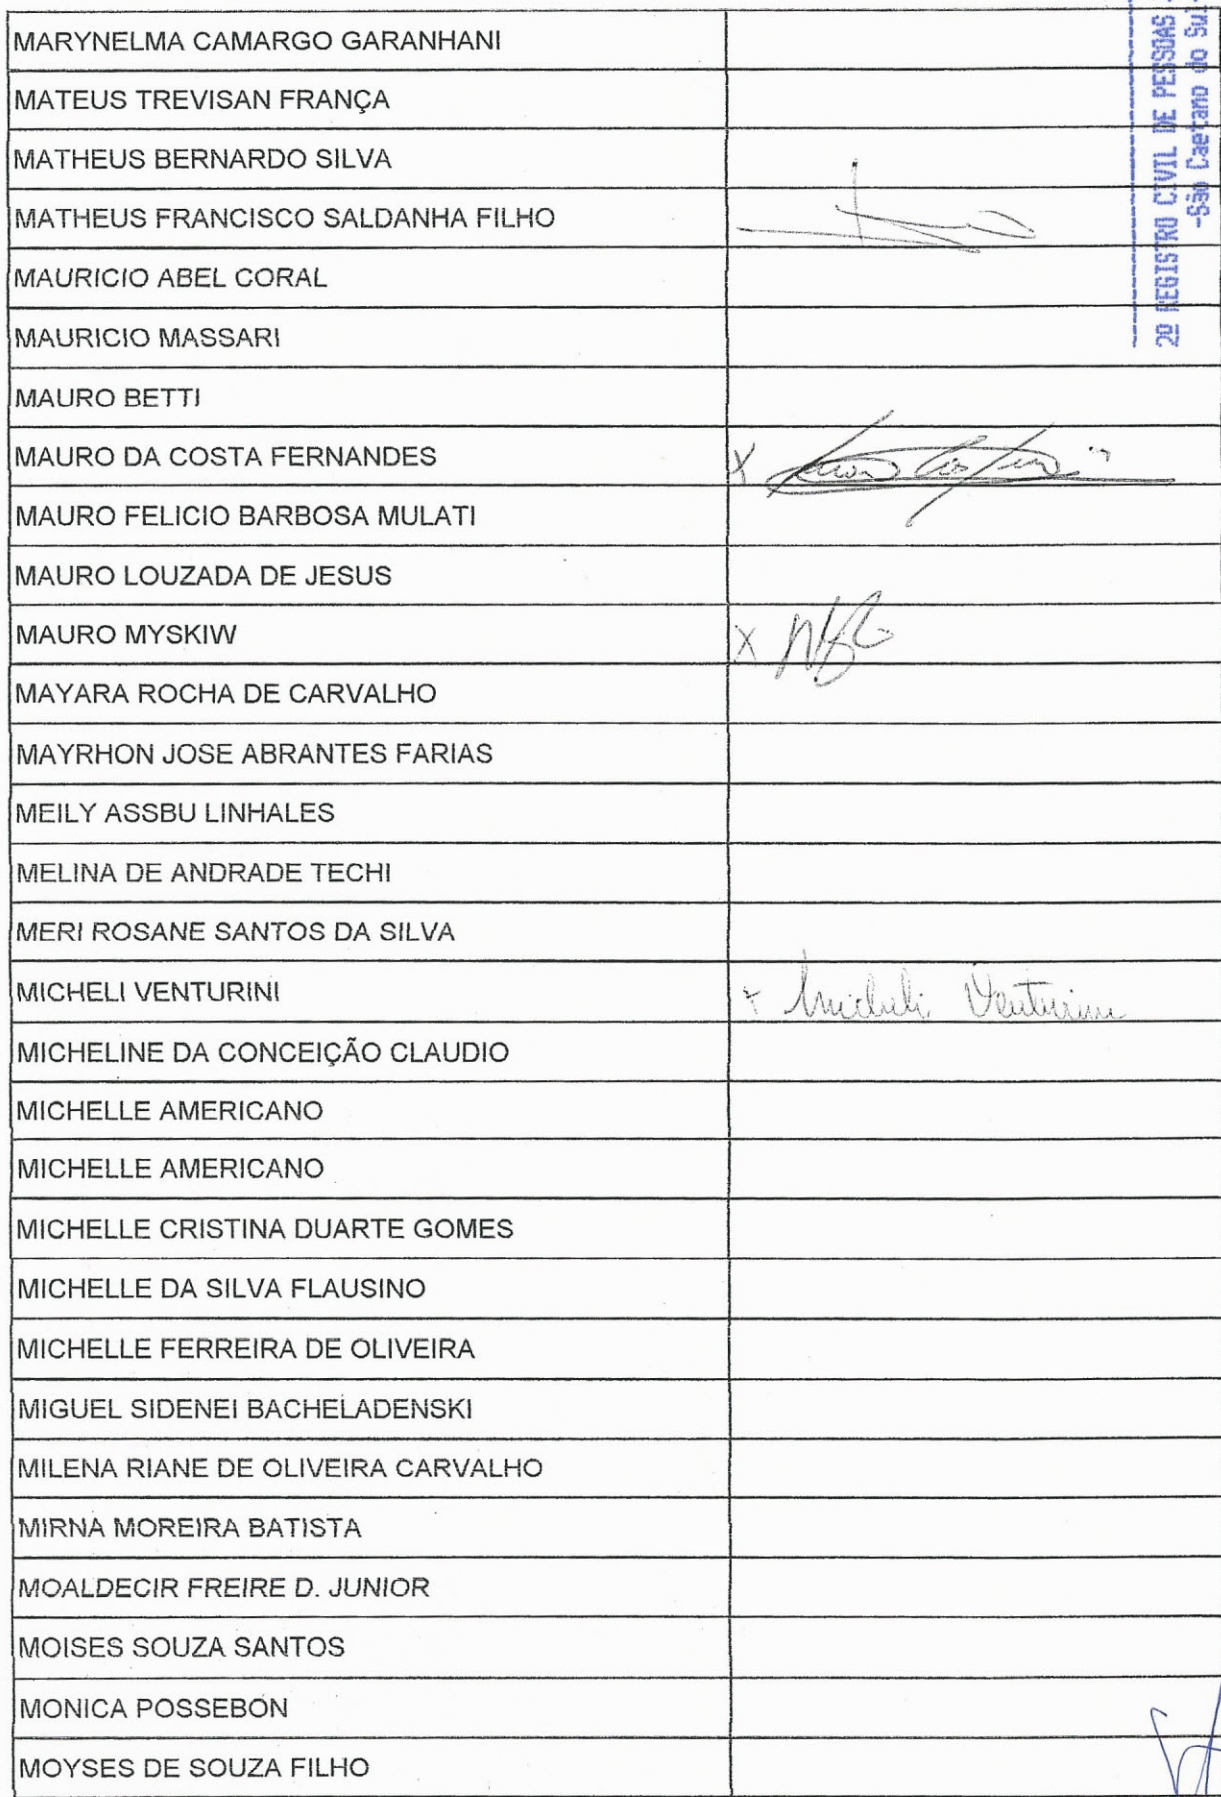 MARYNELMA CAMARGO GARANHANI
MATEUS TREVISAN FRANÇA
MATHEUS BERNARDO SILVA
MATHEUS FRANCISCO SALDANHA FILHO
MAURICIO ABEL CORAL
MAURICIO MASSARI
MAURO BETTI
MAURO DA COSTA FERNANDES
X
MAURO FELICIO BARBOSA MULATI
MAURO LOUZADA DE JESUS
MAURO MYSKIW
X
MAYARA ROCHA DE CARVALHO
MAYRHON JOSE ABRANTES FARIAS
MEILY ASSBU LINHALES
MELINA DE ANDRADE TECHI
MERI ROSANE SANTOS DA SILVA
MICHELI VENTURINI
x Micheli Venturini
MICHELINE DA CONCEIÇÃO CLAUDIO
MICHELLE AMERICANO
MICHELLE AMERICANO
MICHELLE CRISTINA DUARTE GOMES
MICHELLE DA SILVA FLAUSINO
MICHELLE FERREIRA DE OLIVEIRA
MIGUEL SIDENEI BACHELADENSKI
MILENA RIANE DE OLIVEIRA CARVALHO
MIRNA MOREIRA BATISTA
MOALDECIR FREIRE D. JUNIOR
MOISES SOUZA SANTOS
MONICA POSSEBON
MOYSES DE SOUZA FILHO
2º REGISTRO CIVIL DE PESSOAS
-São Caetano do Sul-